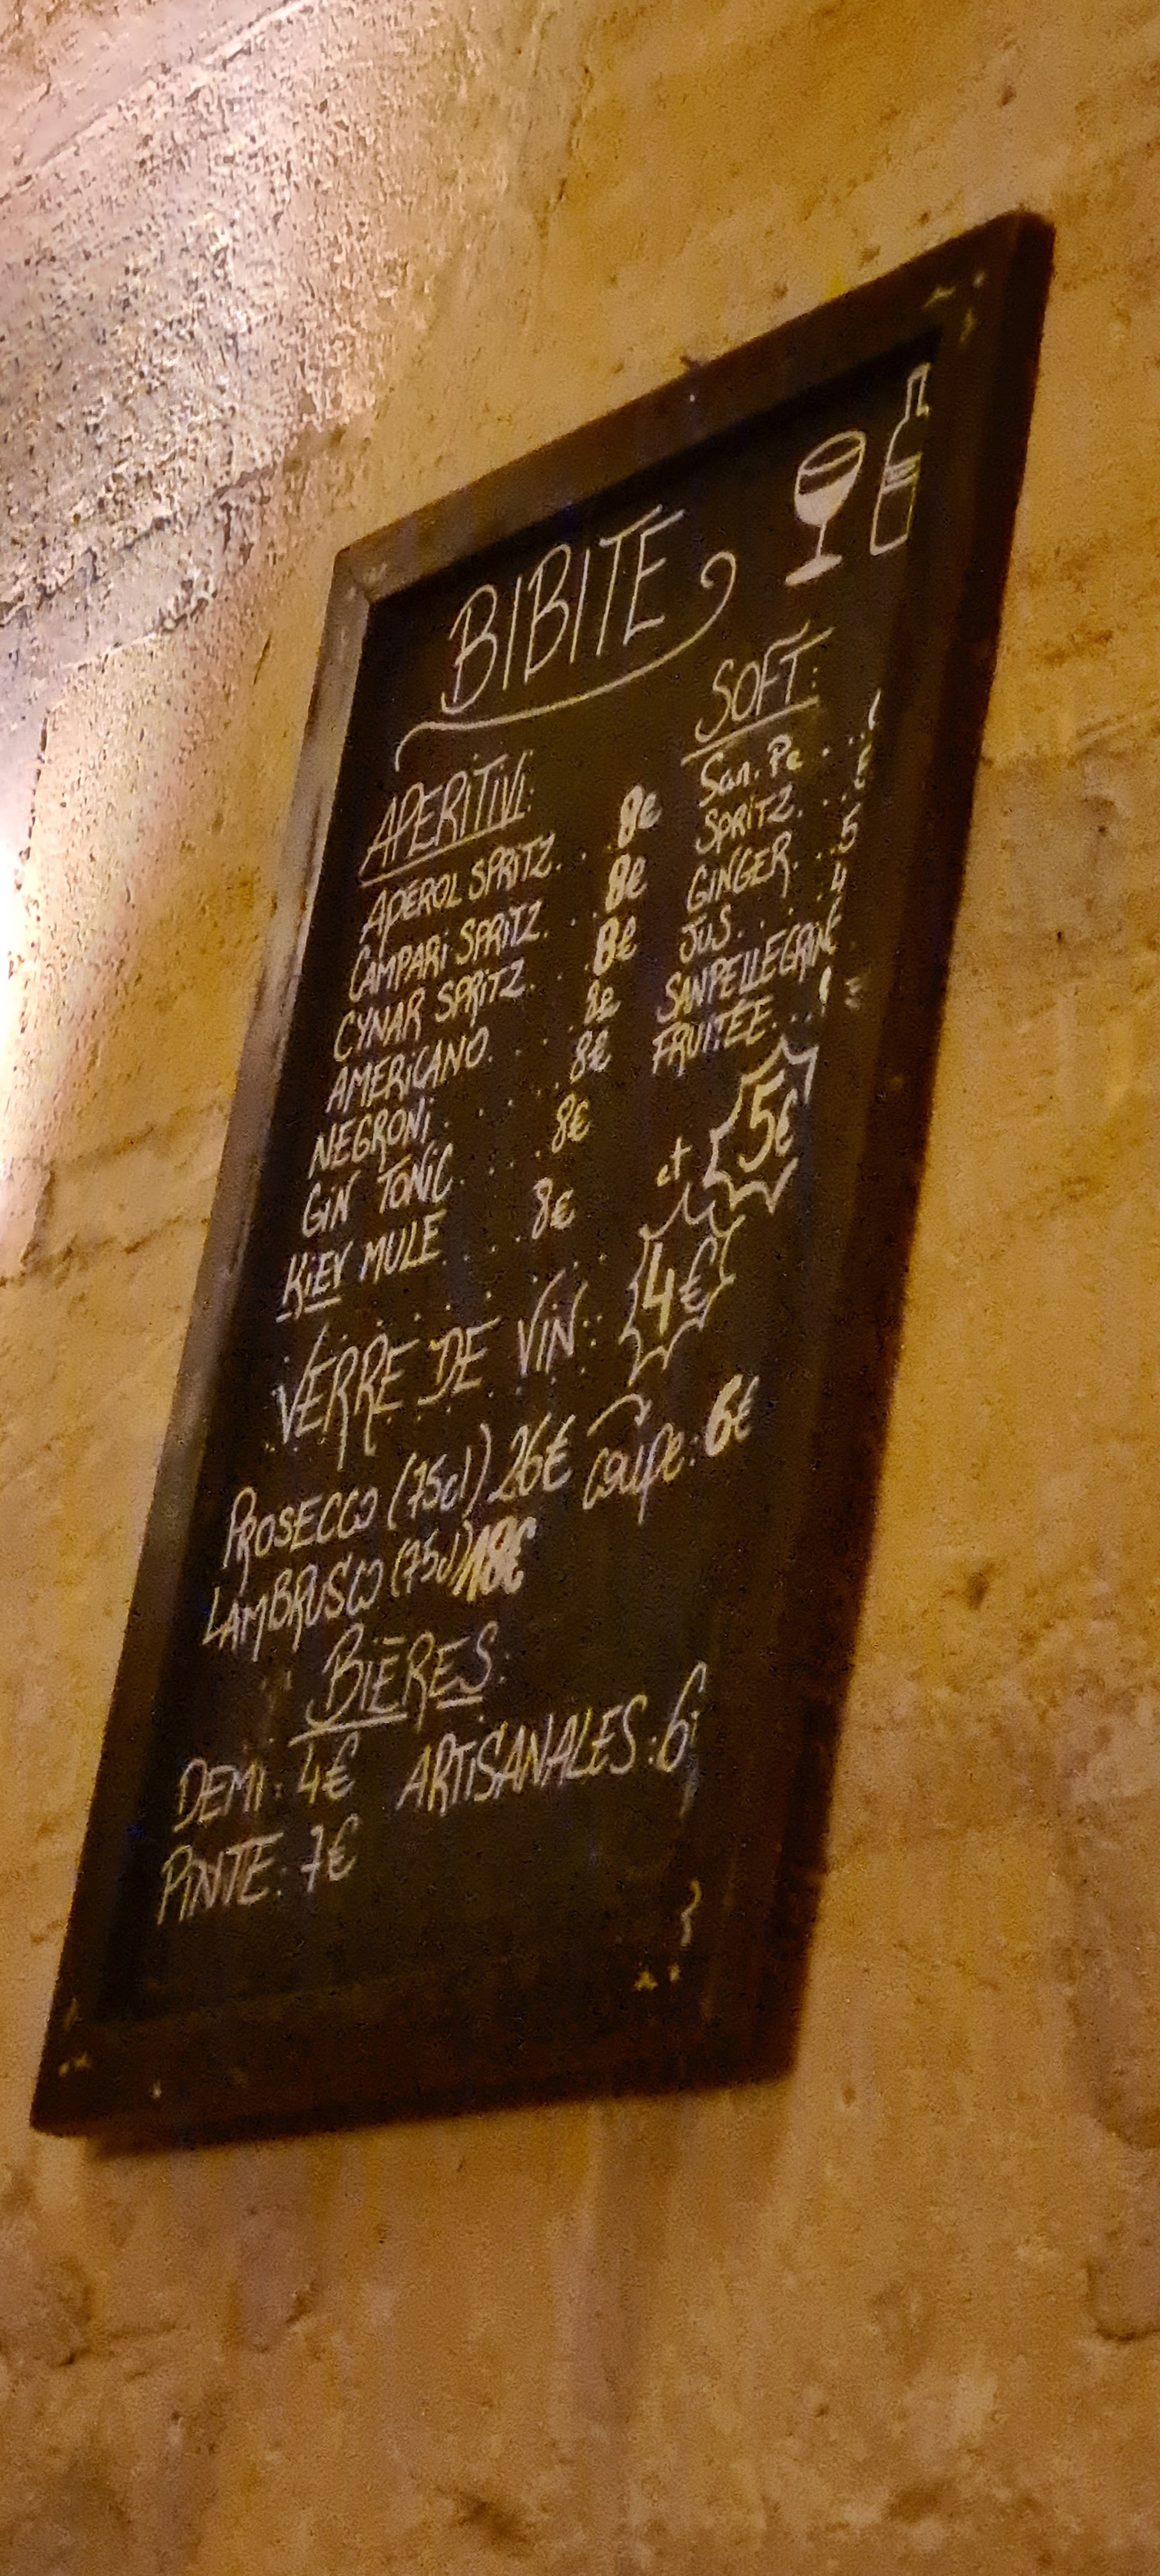 BIBITE
APERITIVI:
APEROL SPRITZ. . . 8€
CAMPARI SPRITZ. . . 8€
CYNAR SPRITZ. . . 8€
AMERICANO. . . . 8€
NEGRONI. . . . . 8€
GIN TONIC. . . . 8€
KIEV MULE . . . 8€
SOFT:
San. Pe . . . .
SPRITZ. . . .
GINGER. . . 5
JUS. . . . 4
SANPELLEGRINO
FRUITÉE. . . .
VERRE DE VIN: 4€ et 5€
PROSECCO (75cl) 26€ coupe: 6€
LAMBRUSCO (75cl) 18€
BIÈRES:
DEMI: 4€ ARTISANALES: 6
PINTE: 7€